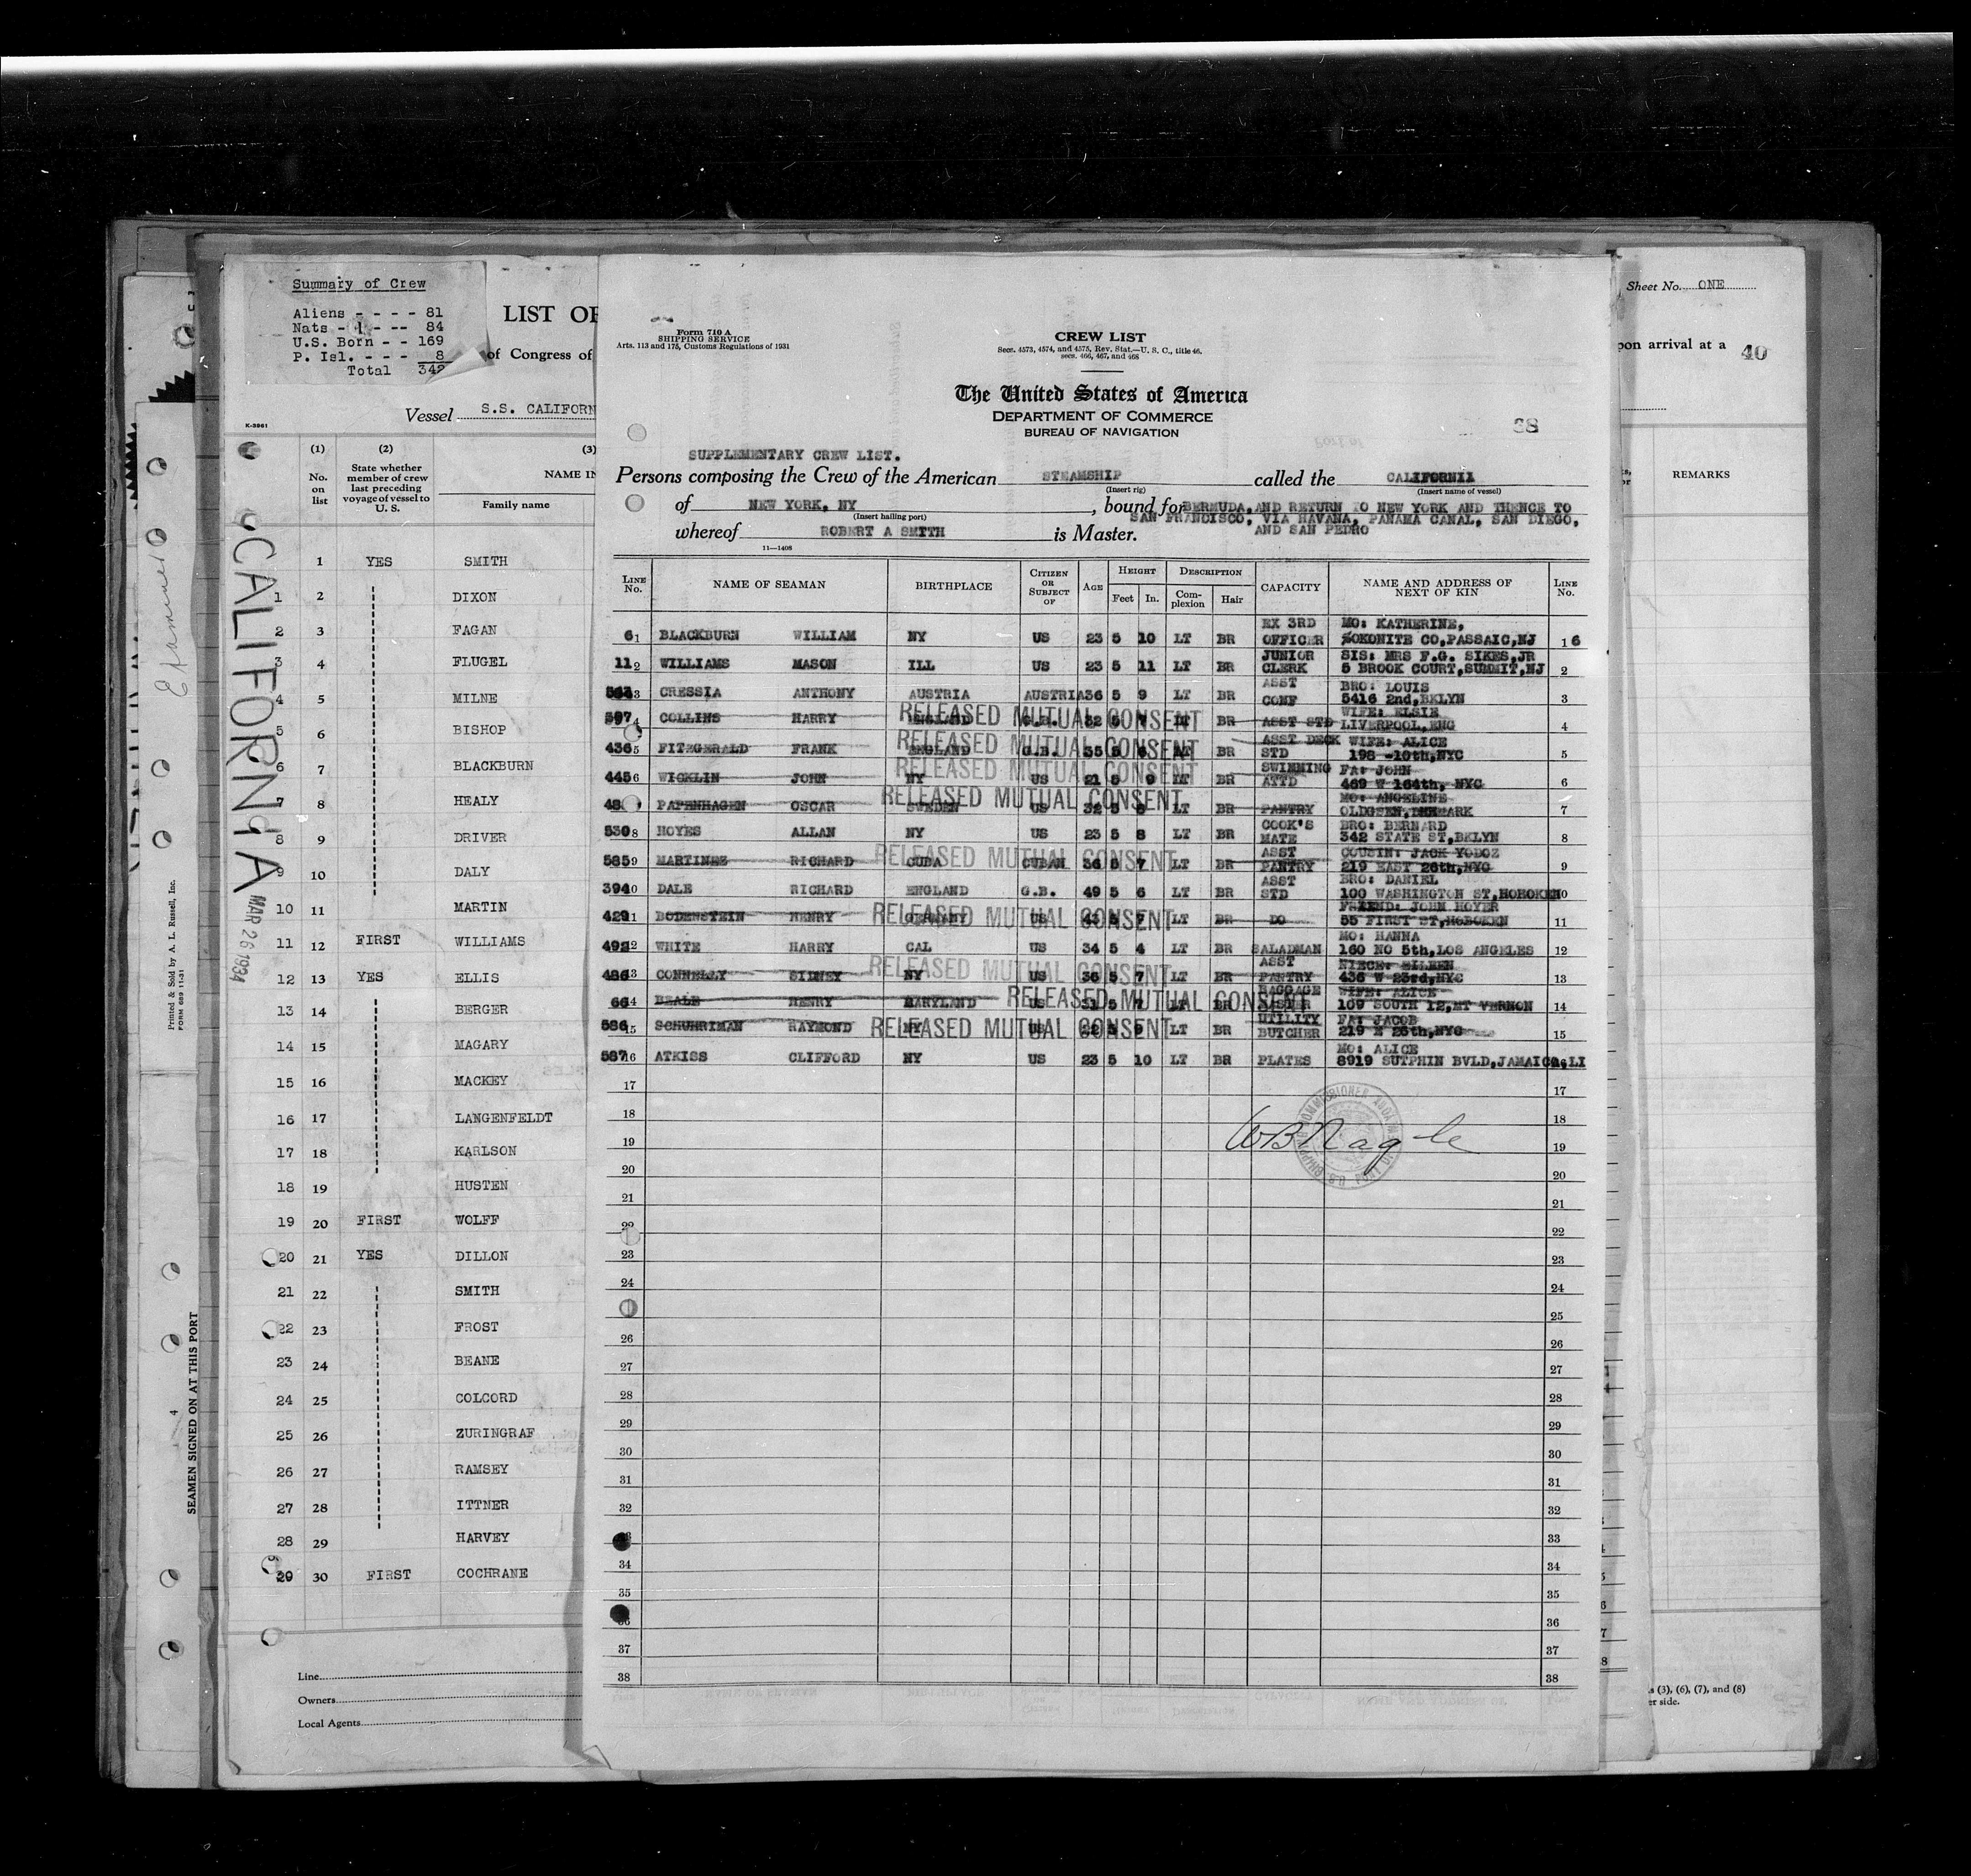 Summary of Crew
Aliens - - - - 81
Nats - - -- 84
U.S. Born - - 169
P. Isl. - - - 8
Total 342
LIST OF
of Congress of
Vessel S.S. CALIFORN
K-3961
(1)
(2)
(3)
No. on list
State whether member of crew last preceding voyage of vessel to U. S.
NAME IN
Family name
1 YES SMITH
1 2 DIXON
2 3 FAGAN
3 4 FLUGEL
4 5 MILNE
5 6 BISHOP
6 7 BLACKBURN
7 8 HEALY
8 9 DRIVER
9 10 DALY
10 11 MARTIN
11 12 FIRST WILLIAMS
12 13 YES ELLIS
13 14 BERGER
14 15 MAGARY
15 16 MACKEY
16 17 LANGENFELDT
17 18 KARLSON
18 19 HUSTEN
19 20 FIRST WOLFF
20 21 YES DILLON
21 22 SMITH
22 23 FROST
23 24 BEANE
24 25 COLCORD
25 26 ZURINGRAF
26 27 RAMSEY
27 28 ITTNER
28 29 HARVEY
29 30 FIRST COCHRANE
Line
Owners
Local Agents
CALIFORNIA
MAR 26 1934
Printed & Sold by A. L. Russell, Inc.
FORM 689 11-31
4
SEAMEN SIGNED ON AT THIS PORT
Form 710 A
SHIPPING SERVICE
Arts. 113 and 175, Customs Regulations of 1931
CREW LIST
Secs. 4573, 4574, and 4575, Rev. Stat.—U. S. C., title 46,
secs. 466, 467, and 468
The United States of America
DEPARTMENT OF COMMERCE
BUREAU OF NAVIGATION
38
SUPPLEMENTARY CREW LIST.
Persons composing the Crew of the American STEAMSHIP called the CALIFORNIA
(Insert rig)
(Insert name of vessel)
of NEW YORK, NY, bound for BERMUDA, AND RETURN TO NEW YORK AND THENCE TO
(Insert hailing port)
SAN FRANCISCO, VIA HAVANA, PANAMA CANAL, SAN DIEGO,
whereof ROBERT A SMITH is Master.
AND SAN PEDRO
11—1408
LINE No.
NAME OF SEAMAN
BIRTHPLACE
CITIZEN OR SUBJECT OF
AGE
HEIGHT
Feet
In.
DESCRIPTION
Complexion
Hair
CAPACITY
NAME AND ADDRESS OF NEXT OF KIN
LINE No.
EX 3RD MO: KATHERINE,
6 1 BLACKBURN WILLIAM NY US 23 5 10 LT BR OFFICER OKONITE CO,PASSAIC,NJ 1 6
JUNIOR SIS: MRS F.G. SIKES,JR
11 2 WILLIAMS MASON ILL US 23 5 11 LT BR CLERK 5 BROOK COURT,SUMMIT,NJ 2
ASST BRO: LOUIS
3 CRESSIA ANTHONY AUSTRIA AUSTRIA 36 5 9 LT BR CONF 5416 2nd,BKLYN 3
WIFE: ELSIE
397 4 COLLINS HARRY ENGLAND G.B. 32 5 7 LT BR ASST STD LIVERPOOL,ENG 4
RELEASED MUTUAL CONSENT
ASST DECK WIFE: ALICE
436 5 FITZGERALD FRANK ENGLAND G.B. 35 5 BR STD 198 -10th,NYC 5
RELEASED MUTUAL CONSENT
SWIMMING FA: JOHN
445 6 WICKLIN JOHN NY US 21 5 9 LT BR ATTD 469 W 164th, NYC 6
RELEASED MUTUAL CONSENT
MO: ANGELINE
48 PAPENHAGEN OSCAR SWEDEN US 32 5 LT BR PANTRY DENMARK 7
RELEASED MUTUAL CONSENT
COOK'S BRO: BERNARD
530 8 HOYES ALLAN NY US 23 5 8 LT BR MATE 342 STATE ST,BKLYN 8
ASST COUSIN: JACK YODOZ
585 9 MARTINEZ RICHARD CUBA CUBAN 36 5 7 LT BR PANTRY 219 EAST 26th,NYC 9
RELEASED MUTUAL CONSENT
ASST BRO: DANIEL
394 0 DALE RICHARD ENGLAND G.B. 49 5 6 LT BR STD 100 WASHINGTON ST,HOBOKEN 0
FRIEND: JOHN HOYER
429 1 BODENSTEIN HENRY GERMANY US 5 7 LT BR DO 55 FIRST ST,HOBOKEN 11
RELEASED MUTUAL CONSENT
MO: HANNA
492 2 WHITE HARRY CAL US 34 5 4 LT BR SALADMAN 160 NO 5th,LOS ANGELES 12
ASST NIECE: EILEEN
486 3 CONNELLY SIDNEY NY US 36 5 7 LT BR PANTRY 436 W 23rd,NYC 13
RELEASED MUTUAL CONSENT
BAGGAGE WIFE: ALICE
66 4 BEALE HENRY MARYLAND US 31 5 7 BR MASTER 109 SOUTH 12,MT VERNON 14
RELEASED MUTUAL CONSENT
UTILITY FA: JACOB
586 15 SCHUHRIMAN RAYMOND NY US 22 5 LT BR BUTCHER 219 E 26th,NYC 15
RELEASED MUTUAL CONSENT
MO: ALICE
587 16 ATKISS CLIFFORD NY US 23 5 10 LT BR PLATES 8919 SUTPHIN BVLD,JAMAICA,LI
17 17
18 18
19 19
20 20
21 21
22 22
23 23
24 24
25
26 26
27 27
28 28
29 29
30 30
31 31
32 32
33
34 34
35 35
36 36
37 37
38 38
WB Nagle
Sheet No. ONE
pon arrival at a
40
REMARKS
s (3), (6), (7), and (8)
er side.